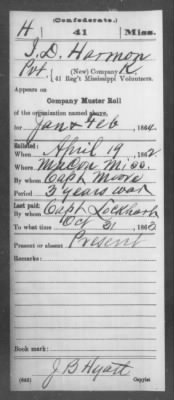 (Confederate.)
H 41 Miss.
J. D. Harmon
Pvt., (New) Company K,
41 Reg't Mississippi Volunteers.
Appears on
Company Muster Roll
of the organization named above,
for Jan & Feb, 1864.
Enlisted:
When April 19, 1862
Where Macon Miss.
By whom Capt Moore
Period 3 years war
Last paid:
By whom Capt Lockhart
To what time Oct 31, 1863
Present or absent Present
Remarks:
Book mark:
J B Hyatt
(642) Copyist.